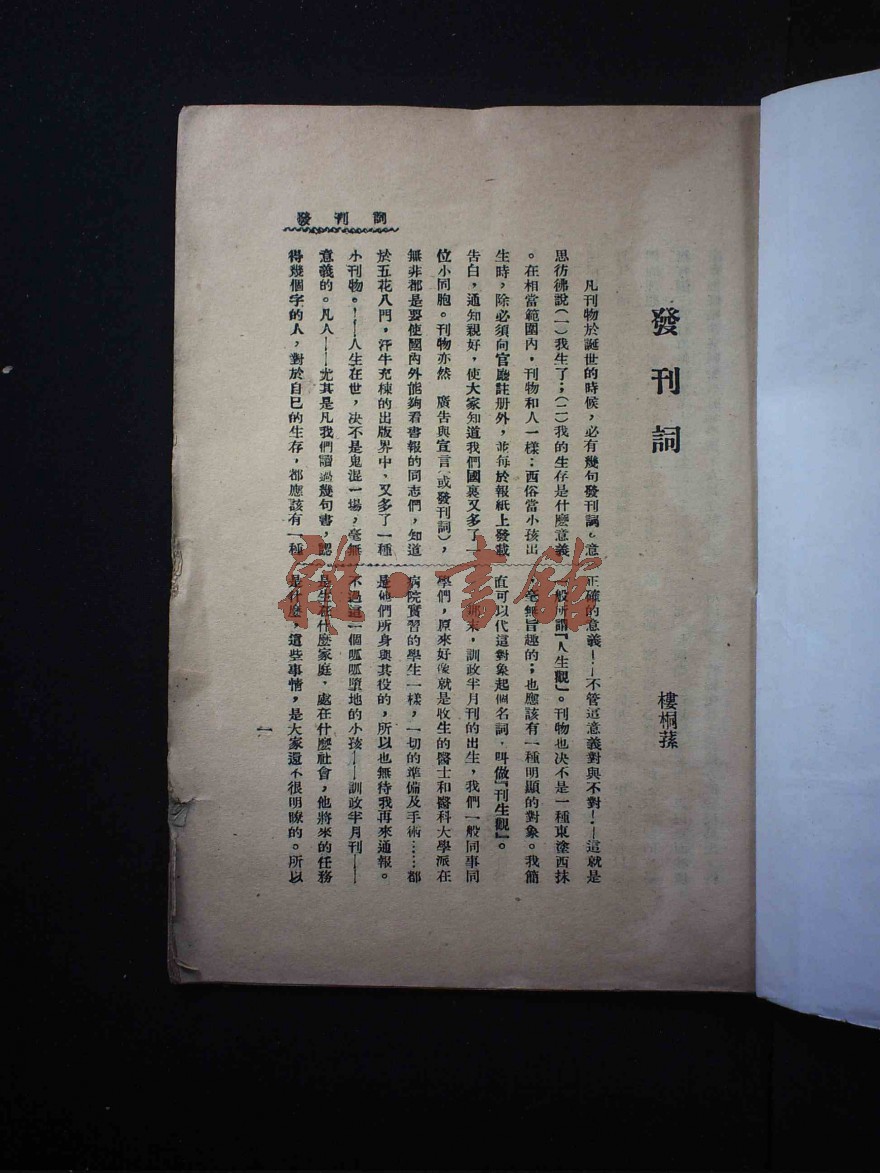 發刊詞
樓桐蓀
發刊詞
凡刊物於誕世的時候，必有幾句發刊詞。意
思彷彿說（一）我生了；（二）我的生存是什麽意義
。在相當範圍內，刊物和人一樣：西俗當小孩出
生時，除必須向官廳註册外，並每於報紙上發載
告白，通知親好，使大家知道我們國裏又多了一
位小同胞。刊物亦然　廣告與宣言（或發刊詞），
無非都是要使國內外能夠看書報的同志們，知道
於五花八門，汗牛充棟的出版界中、又多了一種
小刊物。——人生在世，决不是鬼混一塲，毫無
意義的。凡人——尤其是凡我們讀過幾句書，認
得幾個字的人，對於自己的生存，都應該有一種
正確的意義——不管這意義對與不對！——這就是
一般所謂『人生觀』。刊物也决不是一種東塗西抹
，毫無旨趣的；也應該有一種明顯的對象。我簡
直可以代這對象起個名詞，叫做『刊生觀』。
末，訓政半月刊的出生，我們一般同事同
學們，原來好像就是收生的醫士和醫科大學派在
病院實習的學生一樣，一切的準備及手術……都
是他們所身與其役的，所以也無待我再來通報。
不過這一個呱呱墮地的小孩——訓政半月刊——
是生在什麽家庭，處在什麽社會，他將來的任務
是什麽，這些事情，是大家還不很明瞭的。所以
一
雜·書館